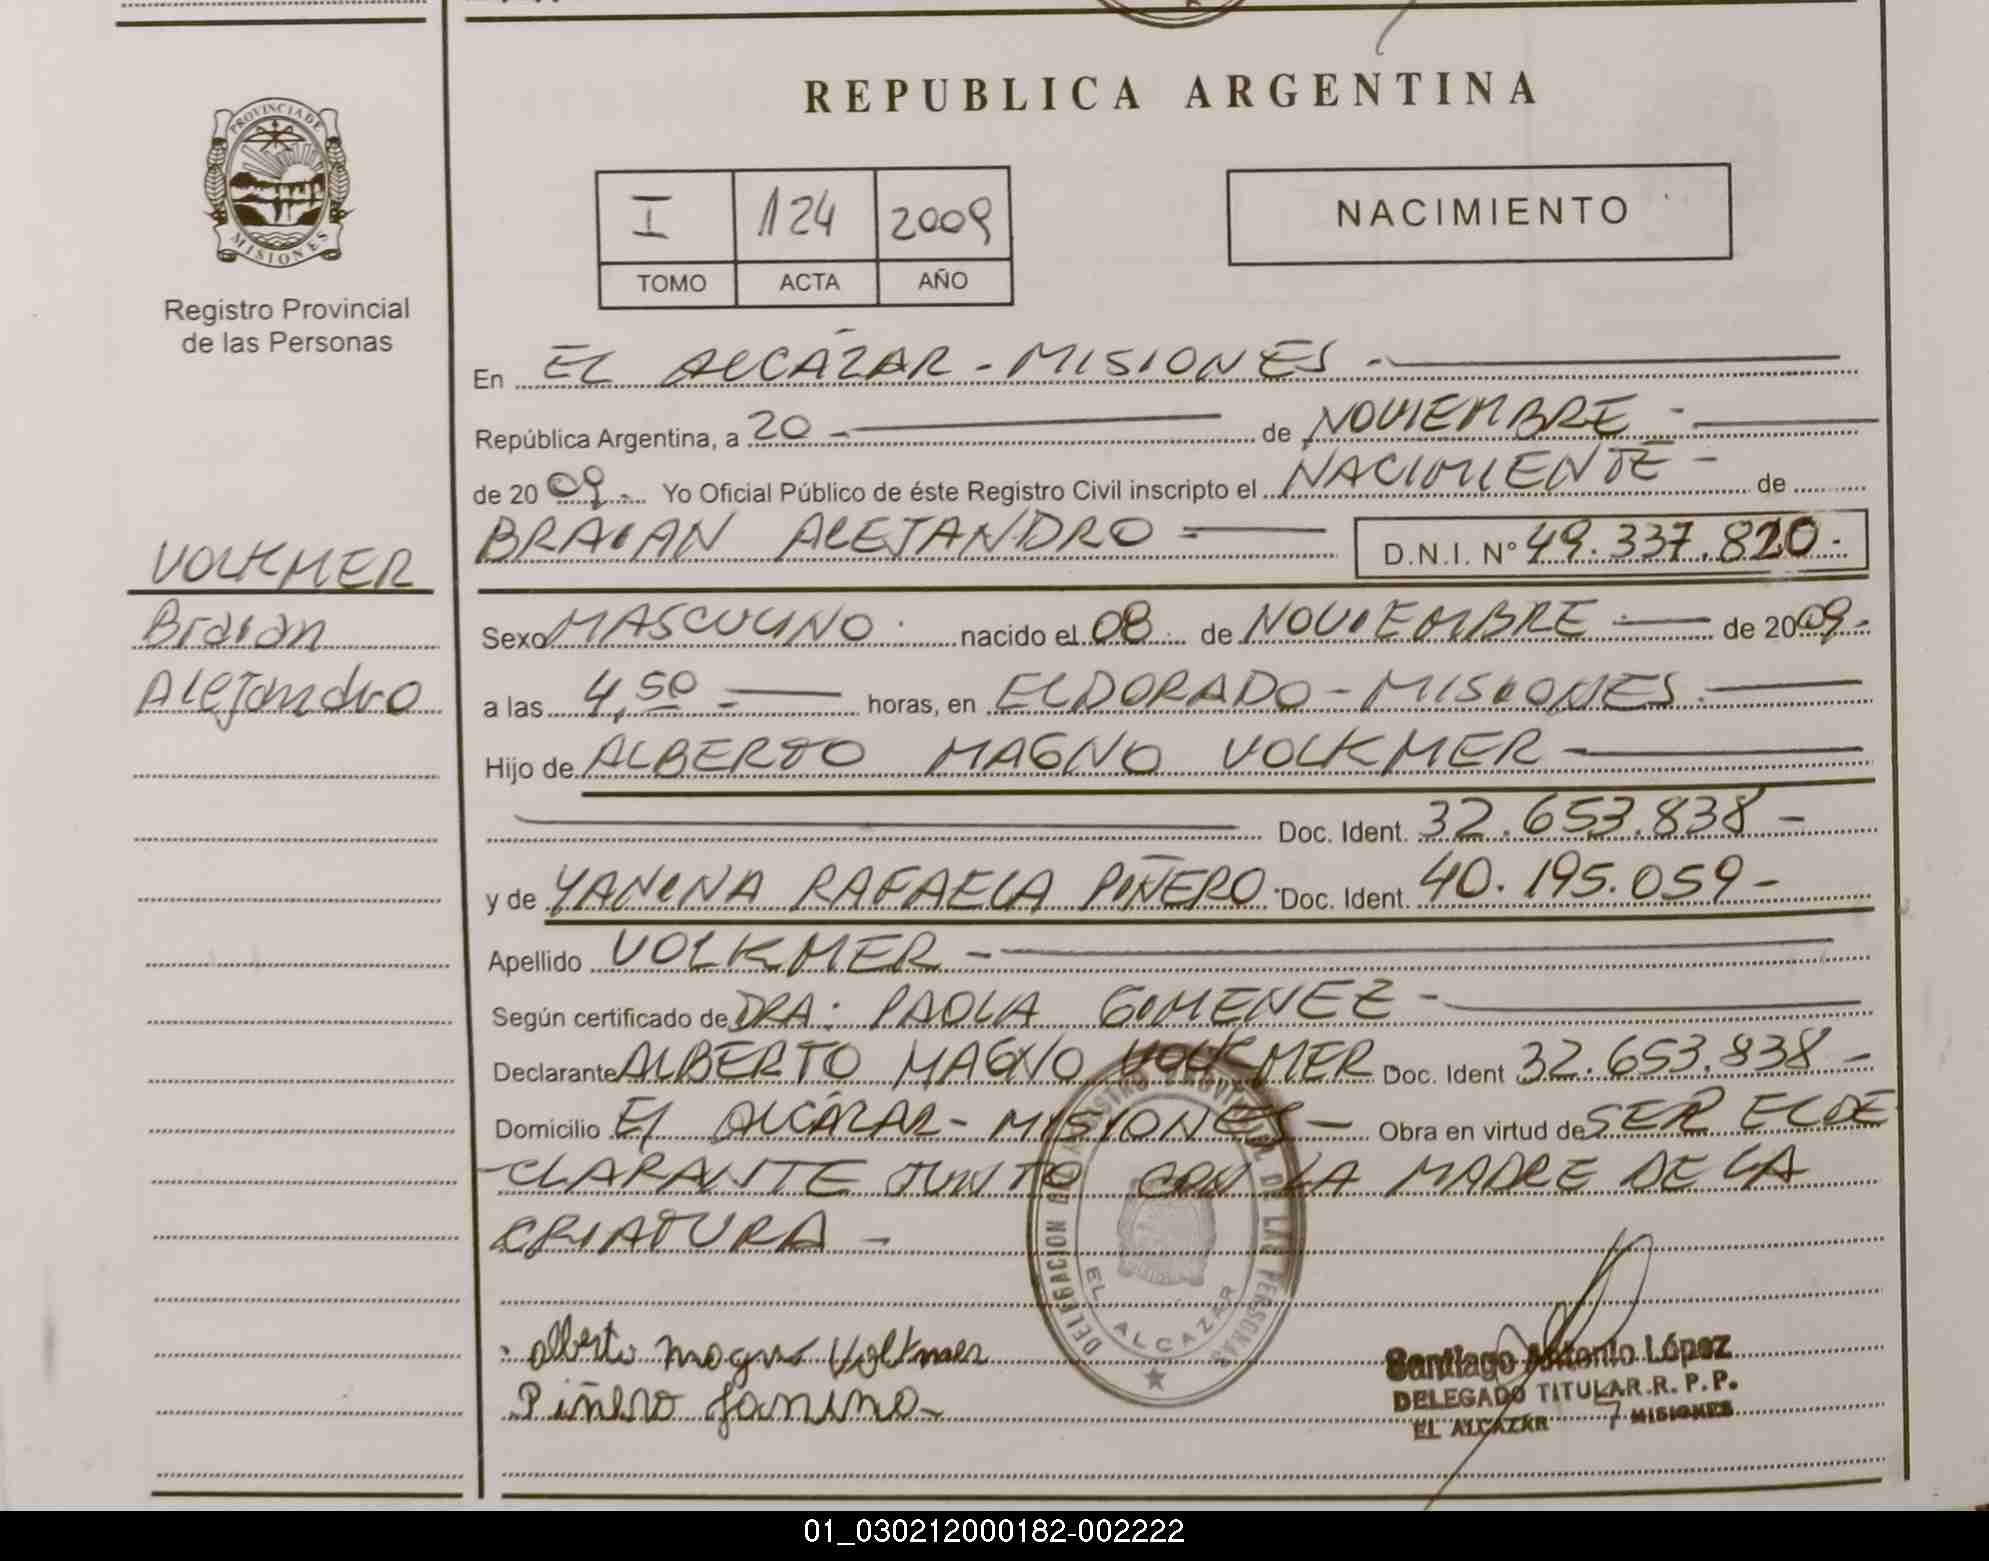 REPUBLICA ARGENTINA
PROVINCIA DE MISIONES
Registro Provincial
de las Personas
I 124 2009
TOMO ACTA AÑO
NACIMIENTO
En EL ALCÁZAR - MISIONES -
República Argentina, a 20 - de NOVIEMBRE -
de 2009 - Yo Oficial Público de éste Registro Civil inscripto el NACIMIENTE - de
BRAIAN ALEJANDRO = D.N.I. N° 49.337.820.
VOLKMER
Braian
Alejandro
Sexo MASCULINO. nacido el 08 de NOVIEMBRE - de 2009 -
a las 4,50 = horas, en ELDORADO - MISIONES.
Hijo de ALBERTO MAGNO VOLKMER -
Doc. Ident. 32.653.838 -
y de YANINA RAFAELA PIÑERO. Doc. Ident. 40.195.059 -
Apellido VOLKMER -
Según certificado de DRA: PAOLA GIMENEZ -
Declarante ALBERTO MAGNO VOLKMER Doc. Ident 32.653.838 -
Domicilio El ALCÁZAR - MISIONES - Obra en virtud de SER EL DE
CLARANTE JUNTO CON LA MADRE DE LA
CRIATURA -
DELEGACION REGISTRO PROVINCIAL DE LAS PERSONAS
EL ALCAZAR
Alberto Magno Volkmer
Piñero Janina -
Santiago Antonio López
DELEGADO TITULAR R. P. P.
EL ALCAZAR MISIONES
01_030212000182-002222